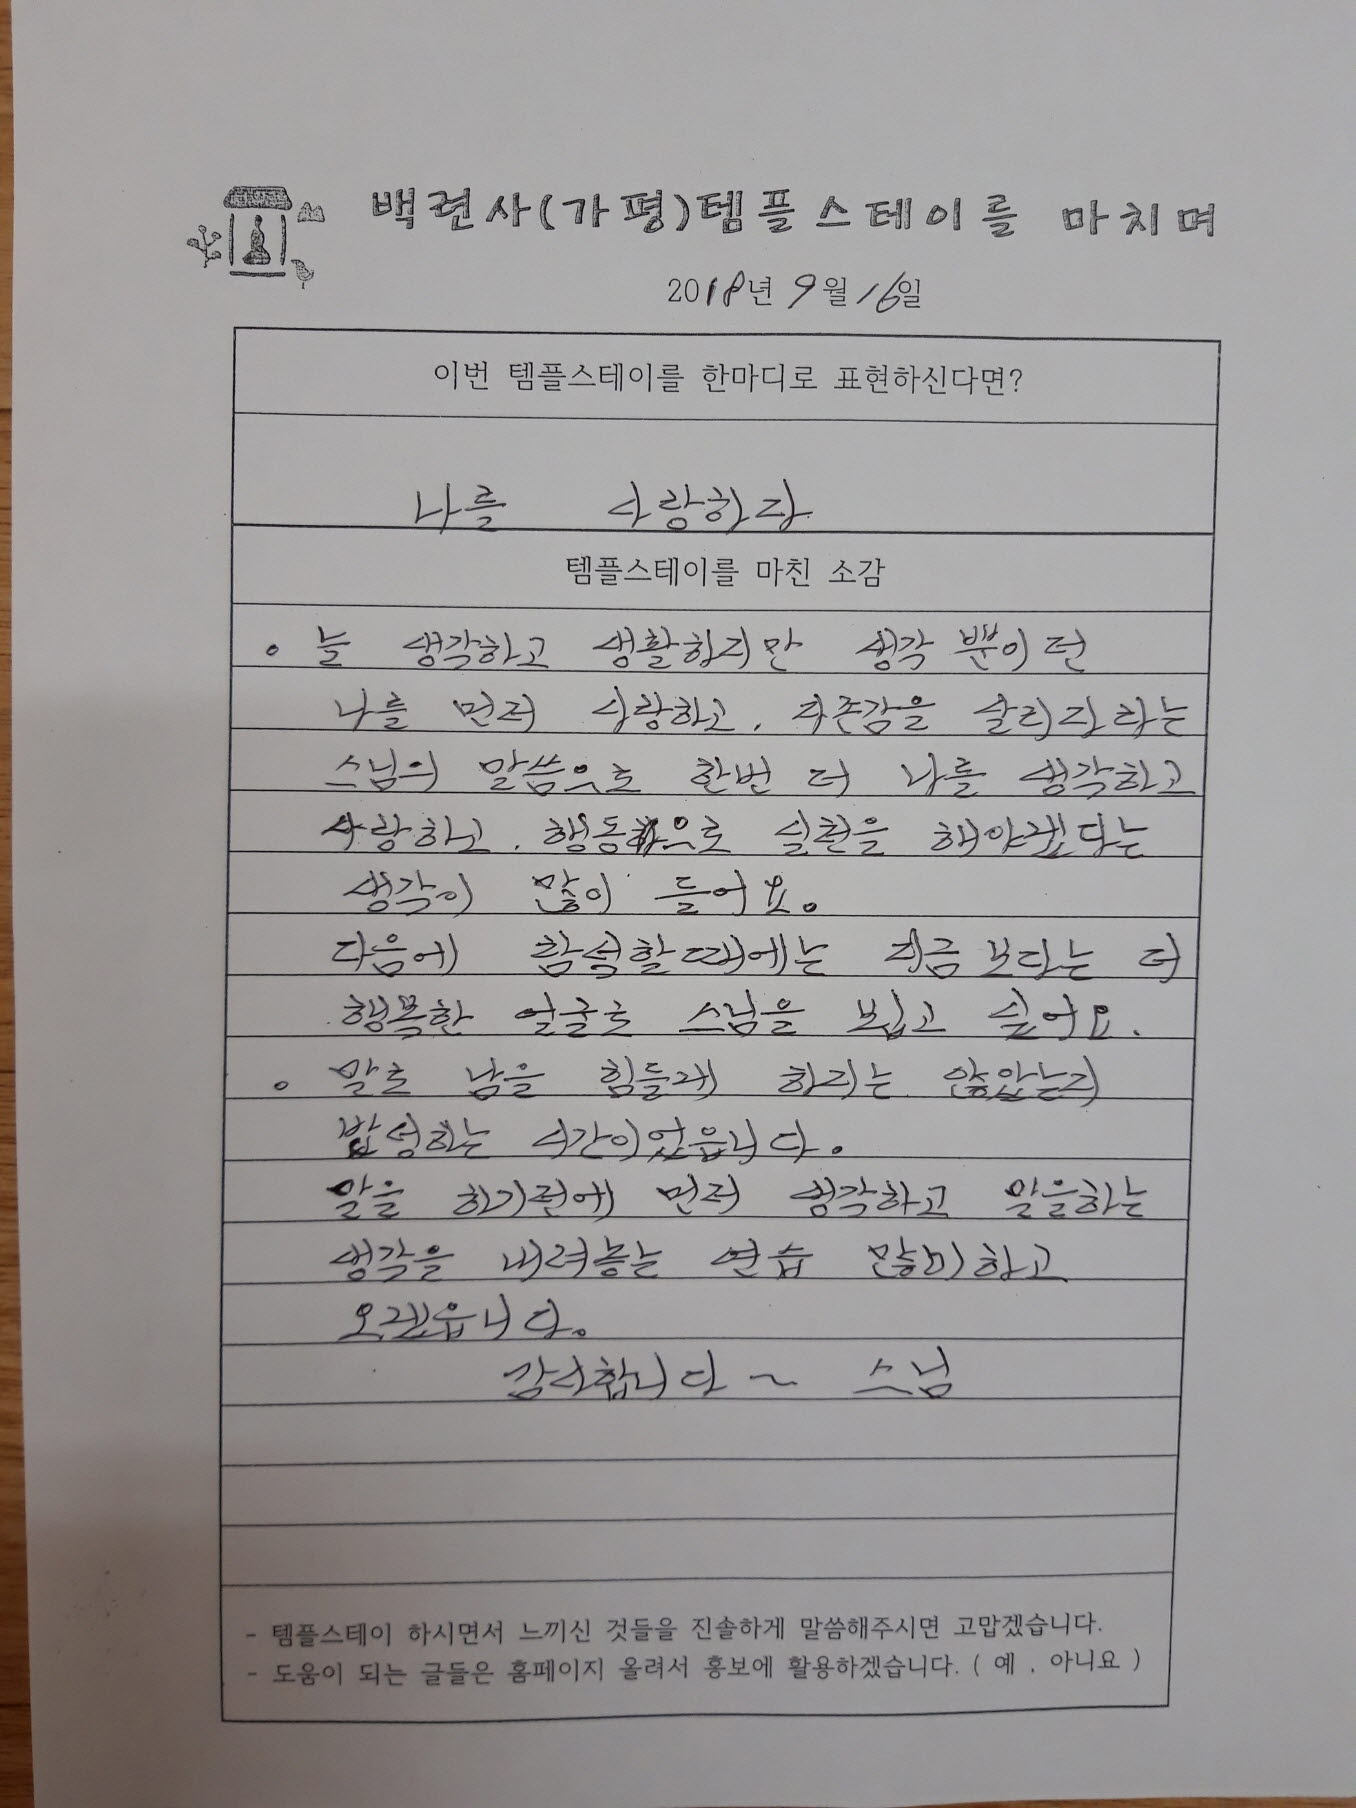 백련사(가평)템플스테이를 마치며
2018년 9월 16일
이번 템플스테이를 한마디로 표현하신다면?
나를 사랑하자
템플스테이를 마친 소감
。늘 생각하고 생활하지만 생각뿐이던
나를 먼저 사랑하고, 자존감을 살리자하는
스님의 말씀으로 한번 더 나를 생각하고
사랑하고, 행동으로 실현을 해야겠다는
생각이 많이 들어요。
다음에 참석할때에는 지금보다는 더
행복한 얼굴로 스님을 뵙고 싶어요.
。말로 남을 힘들게 하지는 않았는지
반성하는 시간이었읍니다。
말을 하기전에 먼저 생각하고 말을하는
생각을 내려놓는 연습 많이하고
오겠읍니다。
감사합니다 ~ 스님
- 템플스테이 하시면서 느끼신 것들을 진솔하게 말씀해주시면 고맙겠습니다.
- 도움이 되는 글들은 홈페이지 올려서 홍보에 활용하겠습니다. ( 예 , 아니요 )